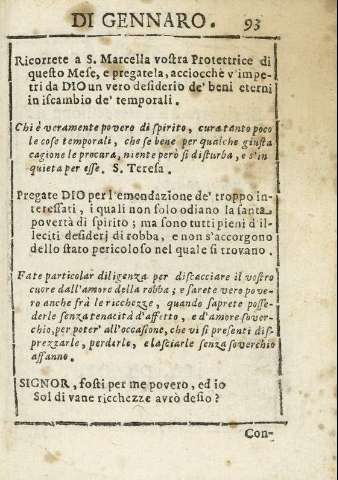 DI GENNARO. 93
Ricorrete a S. Marcella vostra Protettrice di
questo Mese, e pregatela, acciocchè v'impe-
tri da DIO un vero desiderio de' beni eterni
in iscambio de' temporali.
Chi è veramente povero di spirito, cura tanto poco
le cose temporali, che se bene per qualche giusta
cagione le procura, niente però si disturba, e s'in
quieta per esse. S. Teresa.
Pregate DIO per l'emendazione de' troppo in-
teressati, i quali non solo odiano la santa
povertà di spirito; ma sono tutti pieni d'il-
leciti desiderj di robba, e non s'accorgono
dello stato pericoloso nel quale si trovano.
Fate particolar diligenza per distaccare il vostro
cuore dall'amore della robba; e sarete vero pove
ro anche frà le ricchezze, quando saprete posse-
derle senza tenacità d'affetto, e d'amore sover-
chio, per poter' all'occasione, che vi si presenti dis-
prezzarle, perderle, e lasciarle senza soverchio
affanno.
SIGNOR, fosti per me povero, ed io
Sol di vane ricchezze avrò desio?
Con-